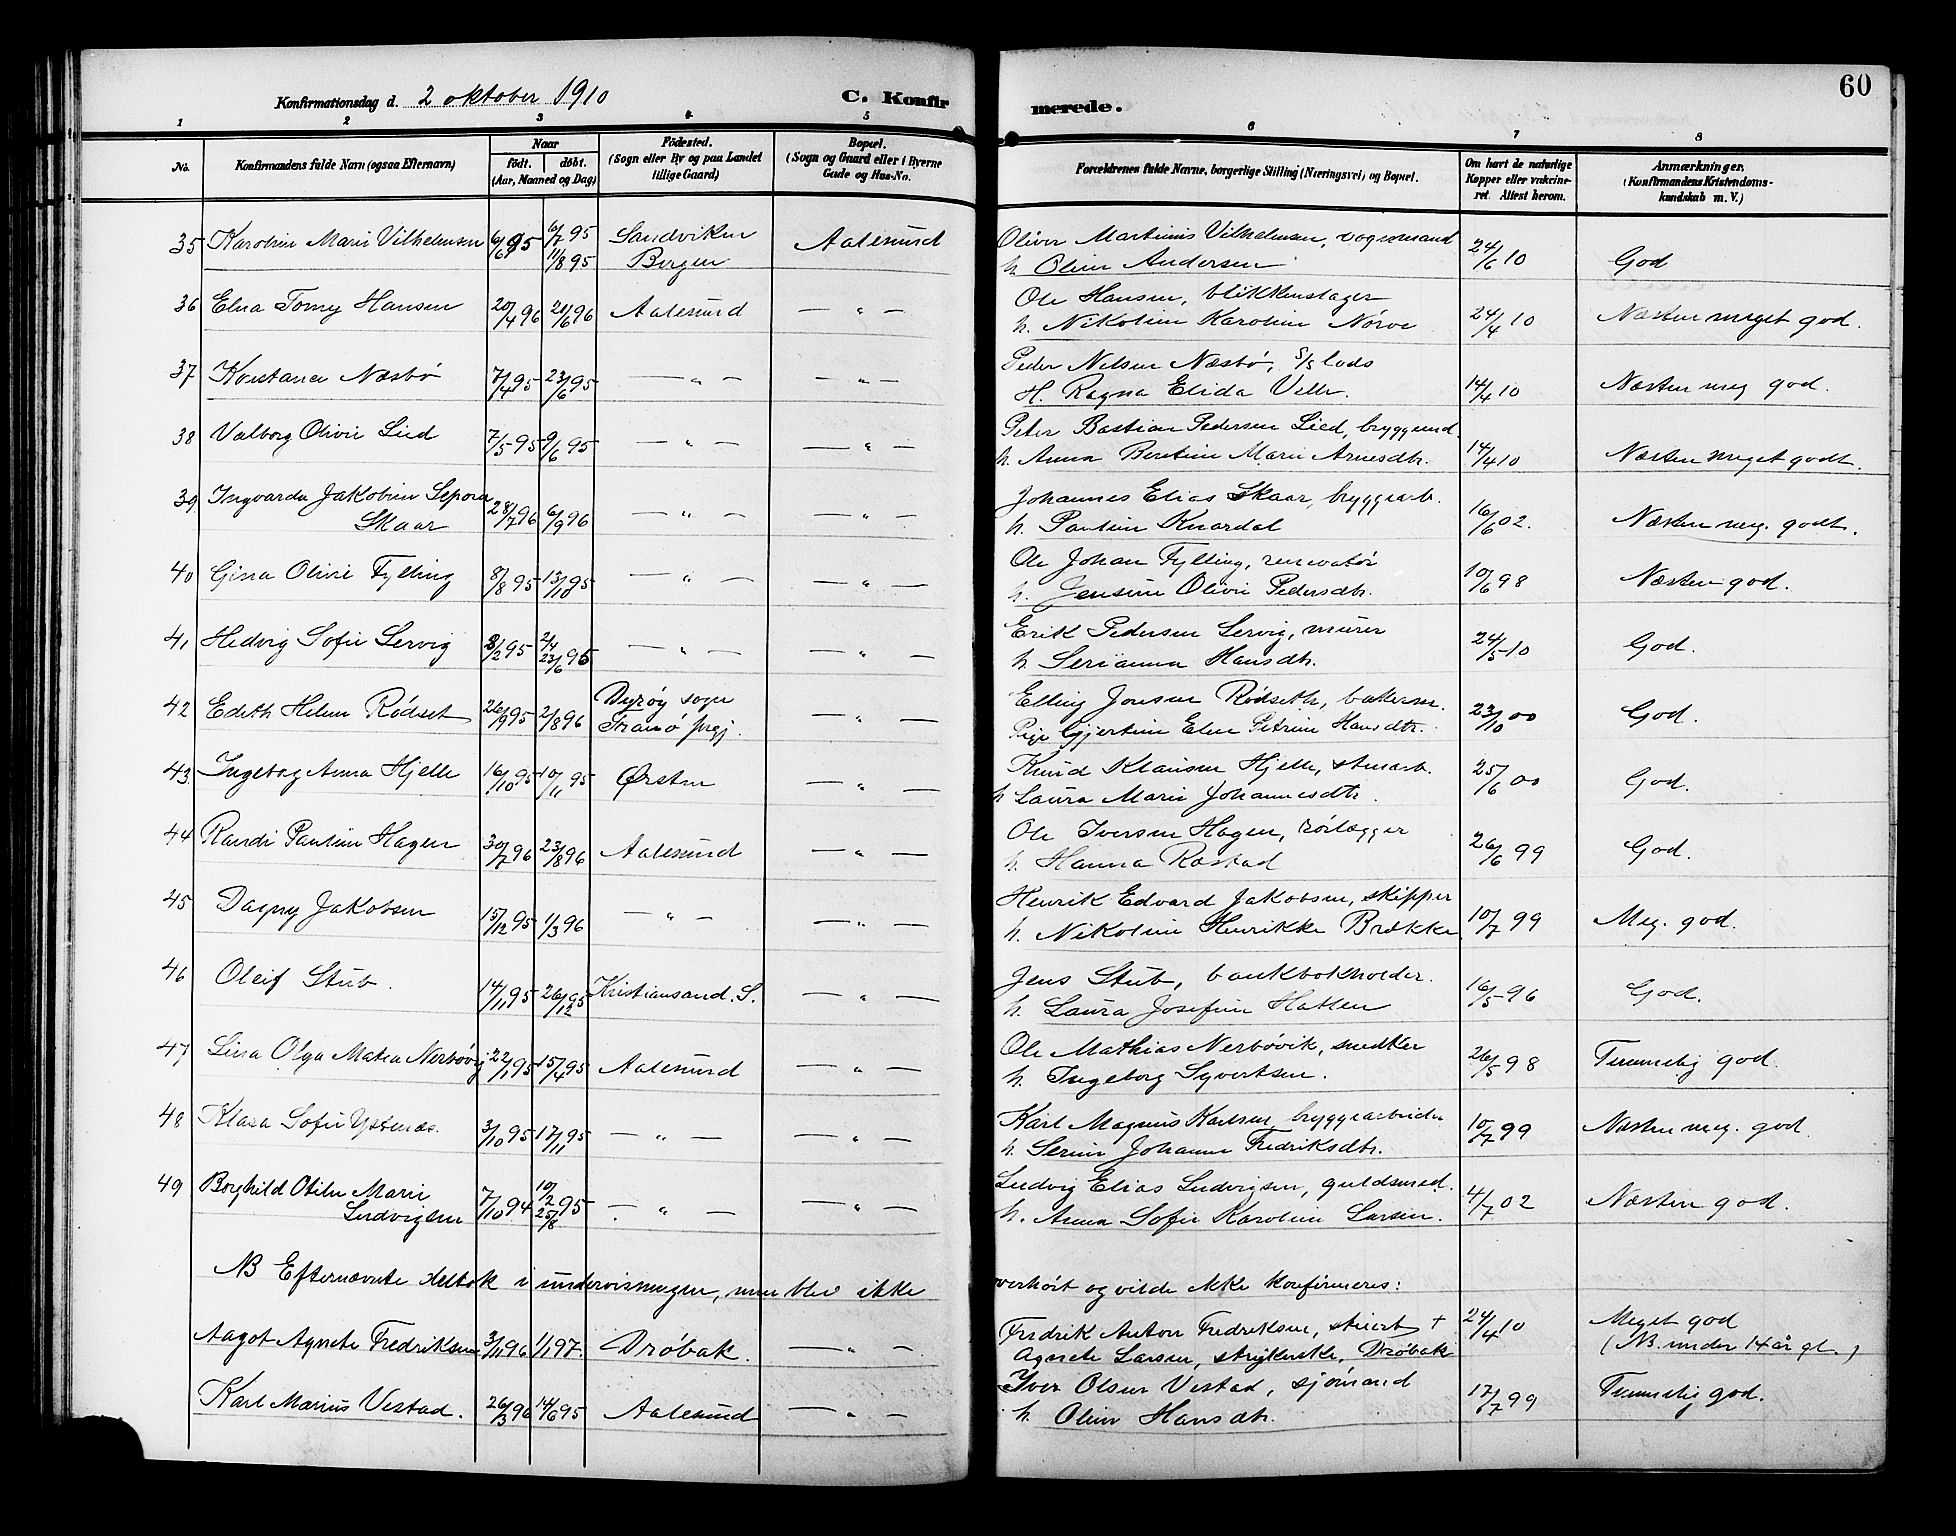 60
Konfirmationsdag d. 2 oktober 1910 C. Konfirmerede.
1 2 3 4 5 6 7 8
No. Konfirmandens fulde Navn (ogsaa Efternavn) Naar født. døbt. (Aar, Maaned og Dag) Födested. (Sogn eller By og paa Landet tillige Gaard) Bopæl. (Sogn og Gaard eller i Byerne Gade og Hus-No. Forældrenes fulde Navne, borgerlige Stilling (Næringsvei) og Bopæl. Om havt de naturlige Kopper eller vakcineret. Attest herom. Anmærkninger. (Konfirmandens Kristendomskundskab m. V.)
35 Karoline Marie Vilhelmsen 6/6 95 6/7 95 Sandviken Aalesund Oliver Martinus Vilhelmsen, vognmand 24/6 10 God
11/8 95 Bergen h. Oline Andersen
36 Elna Tomy Hansen 20/4 96 21/6 96 Aalesund — " — Ole Hansen, blikkenslager 24/4 10 Næsten meget god.
h. Nikoline Karoline Nörve
37 Konstance Næsbö 7/4 95 23/6 95 — " — — " — Peder Nelsen Næsbö, S/S lods 14/4 10 Næsten meg god.
H. Ragna Elida Velle.
38 Valborg Olivie Lied 7/5 95 9/6 95 — " — — " — Peter Bastian Pedersen Lied, bryggemd. 14/4 10 Næsten meget godt.
h. Anna Beretine Marie Arnesdtr.
39 Ingvarda Jakobine Sepora 28/7 96 6/9 96 — " — — " — Johannes Elias Skaar, bryggearb. 16/6 02. Næsten meg. godt.
Skaar h. Pauline Knardal
40 Gina Olivie Fylling 8/8 95 13/10 95 — " — — " — Ole Johan Fylling, renovatör 10/6 98 Næsten god.
h. Jensine Olivie Pedersdtr.
41 Hedvig Sofie Servig 8/2 95 2/4 — " — — " — Erik Pedersen Servig, murer 24/5 10 God.
23/6 95 h. Serianna Hansdtr.
42 Edith Helene Rödset 26/9 95 2/8 96 Dyröy sogn — " — Elling Jonsen Rödseth, bakersv. 23/10 00 God.
Tranö prgj. Pige Gjertine Elen Petrine Hansdtr.
43 Ingebog Anna Hjelle 16/10 95 10/11 95 Ørsten — " — Knud Klausen Hjelle, stuearb. 25/6 00 God.
h Laura Marie Johannesdtr.
44 Randi Pauline Hagen 30/7 96 23/8 96 Aalesund — " — Ole Iversen Hagen, rörlægger 26/6 99 God.
h. Hanna Rastad
45 Dagny Jakobsen 15/12 95 1/3 96 — " — — " — Henrik Edvard Jakobsen, skipper 10/7 99 Meg. god.
h. Nikoline Henrikke Brække
46 Oleif Stub. 14/11 95 26/12 95 Kristiansand. S. — " — Jens Stub, bankbokholder. 16/5 96 God.
h. Laura Josefine Hatlen
47 Lina Olga Matea Nerbövig 22/1 95 15/4 95 Aalesund — " — Ole Mathias Nerbövik, snedker 26/5 98 Temmelig god.
h. Ingeborg Syvertsen.
48 Klara Sofie Ystenæs. 3/10 95 17/11 95 — " — — " — Karl Magnus Karlsen, bryggearbeider 10/7 99 Næsten meg. god.
h. Serine Johanne Fredriksdtr.
49 Borghild Otilie Marie 7/10 94 10/2 95 — " — — " — Ludvig Elias Ludvigsen, guldsmed. 4/7 02 Næsten god.
Ludvigsen 25/8 h. Anna Sofie Karoline Larsen.
NB Efternævnte deltok i undervisningen, men blev ikke overhört og vilde ikke konfirmeres:
Aagot Agnete Fredriksen 3/11 96 1/1 97. Dröbak. — " — Fredrik Anton Fredriksen, stuert + 24/4 10 Meget god
Agnete Larsen, strykerske, Dröbak (NB. under 14 år gl.)
Karl Marius Vestad. 26/3 96 14/6 95 Aalesund — " — Iver Olsen Vestad, sjömand 17/7 99 Temmelig god.
h. Oline Hansdtr.